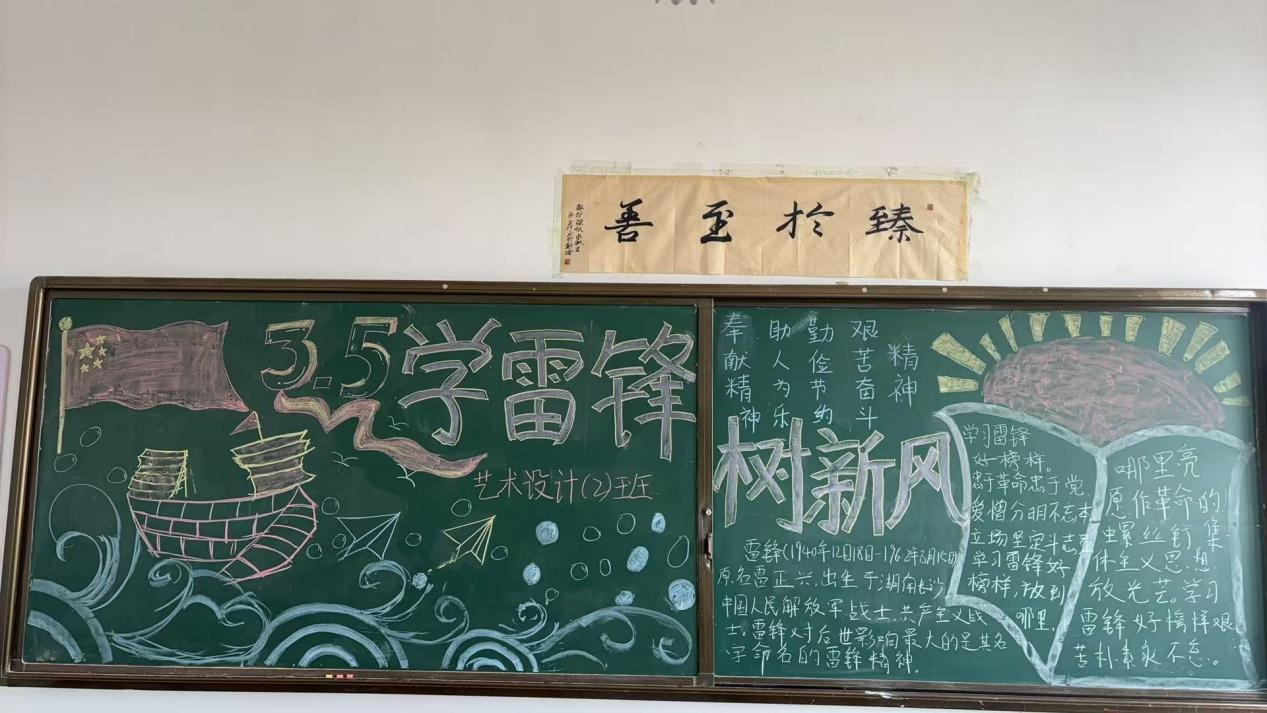 臻於至善
3.5学雷锋
艺术设计(2)班
奉献精神
助人为乐
勤俭节约
艰苦奋斗
精神
树新风
雷锋(1940年12月18日-1962年8月15日)
原名雷正兴,出生于湖南长沙,
中国人民解放军战士,共产主义战
士,雷锋对后世影响最大的是其名
字命名的雷锋精神。
学习雷锋
好榜样。
忠于革命忠于党
爱憎分明不忘本
立场坚定斗志
学习雷锋好
榜样,放到
哪里,
哪里亮
愿作革命的
螺丝钉集
体主义思想
放光芒学习
雷锋好榜样艰
苦朴素永不忘。